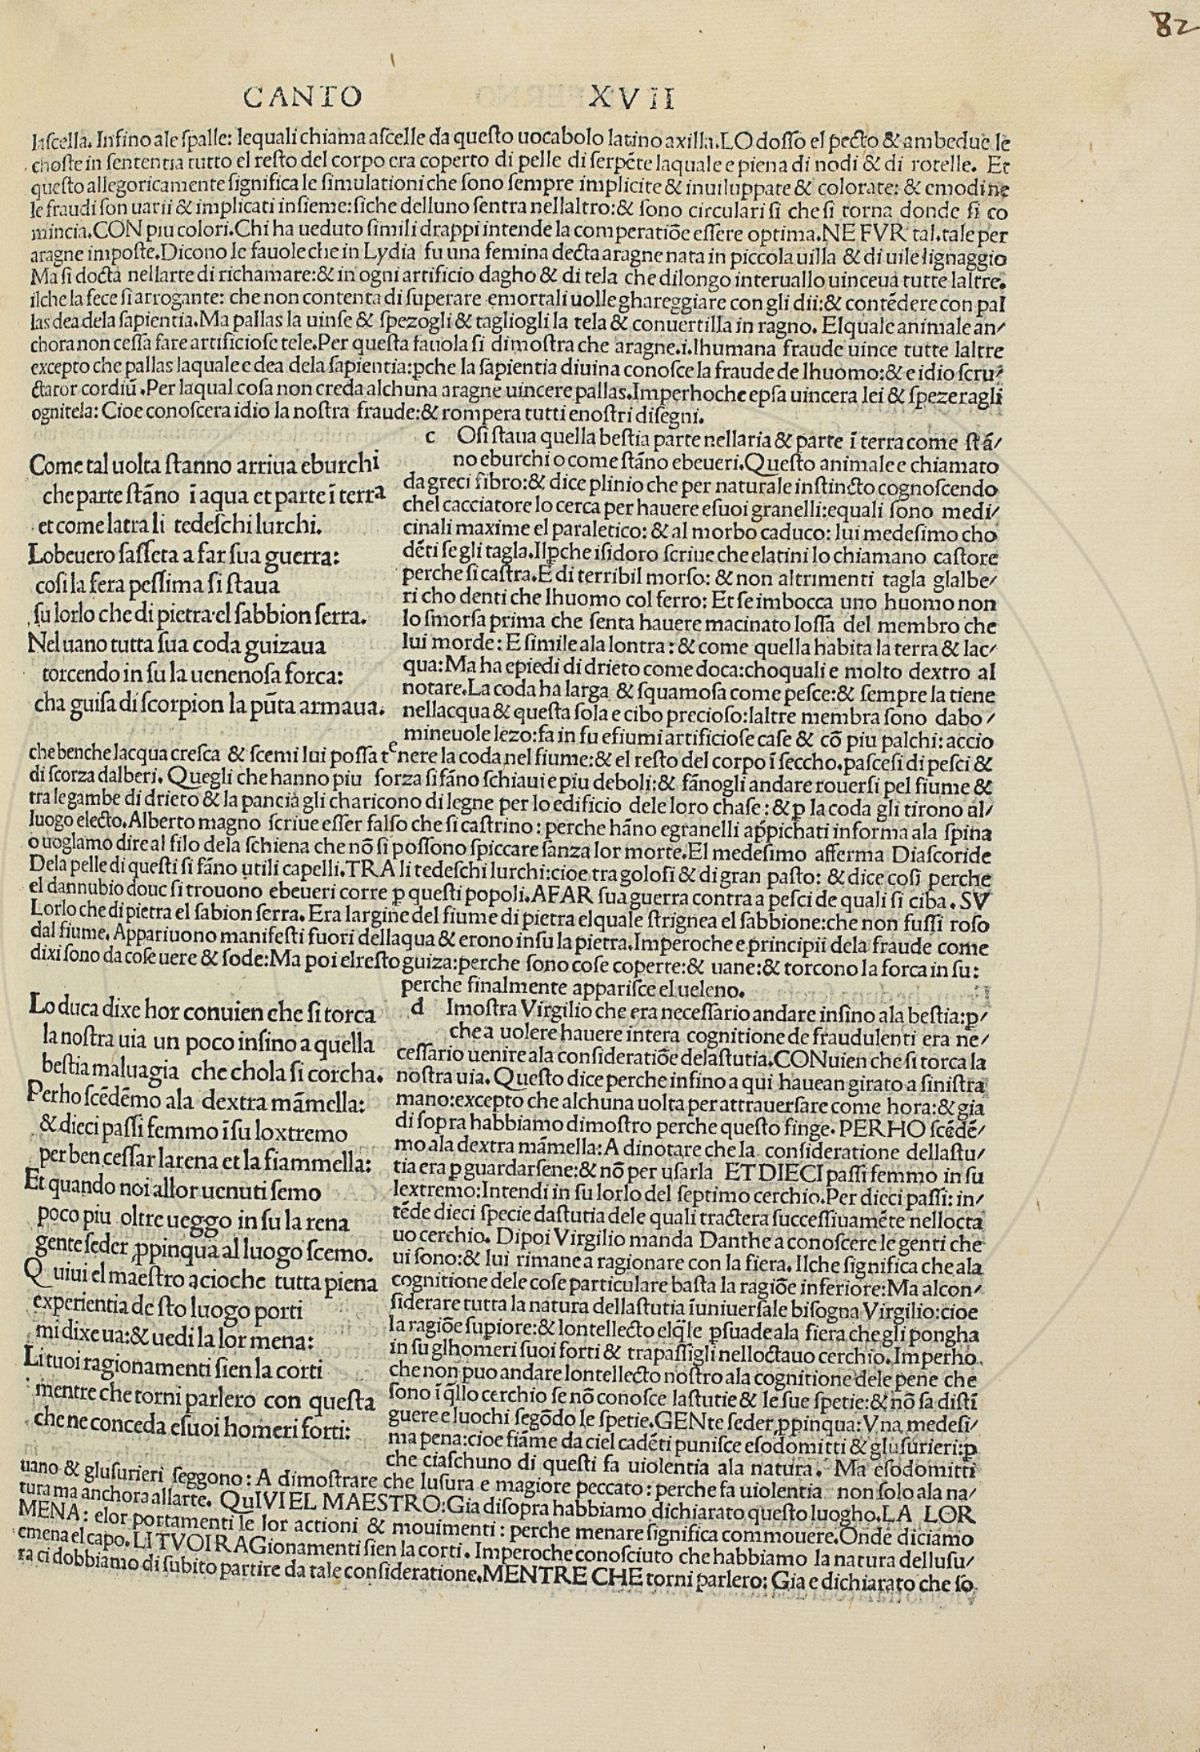 82
CANTO XVII
laſcella. Infino ale ſpalle: lequali chiama aſcelle da queſto uocabolo latino axilla. LO doſſo el pecto & ambedue le
choſte in ſententia tutto el reſto del corpo era coperto di pelle di ſerpẽte laquale e piena di nodi & di rotelle. Et
queſto allegoricamente ſignifica le ſimulationi che ſono ſempre implicite & inuiluppate & colorate: & emodi ne
le fraudi ſon uarii & implicati inſieme: ſiche delluno ſentra nellaltro: & ſono circulari ſi che ſi torna donde ſi co
mincia. CON piu colori. Chi ha ueduto ſimili drappi intende la comperatiõe eſſere optima. NE FVR tal. tale per
aragne impoſte. Dicono le fauole che in Lydia fu una femina decta aragne nata in piccola uilla & di uile lignaggio
Ma ſi docta nellarte di richamare: & in ogni artificio dagho & di tela che dilongo interuallo uinceua tutte laltre.
ilche la fece ſi arrogante: che non contenta di ſuperare emortali uolle ghareggiare con gli dii: & contẽdere con pal
las dea dela ſapientia. Ma pallas la uinſe & ſpezogli & tagliogli la tela & conuertilla in ragno. Elquale animale an/
chora non ceſſa fare artificioſe tele. Per queſta fauola ſi dimoſtra che aragne.i. lhumana fraude uince tutte laltre
excepto che pallas laquale e dea dela ſapientia: ꝑche la ſapientia diuina conoſce la fraude de lhuomo: & e idio ſcru/
ctator cordiũ. Per laqual coſa non creda alchuna aragne uincere pallas. Imperhoche epſa uincera lei & ſpezeragli
ognitela: Cioe conoſcera idio la noſtra fraude: & rompera tutti enoſtri diſegni.
Come tal uolta ſtanno arriua eburchi
che parte ſtãno ĩ aqua et parte ĩ terra
et come la tra li tedeſchi lurchi.
Lo beuero ſaſſeta a far ſua guerra:
coſi la fera peſſima ſi ſtaua
ſu lorlo che di pietra el ſabbion ſerra.
Nel uano tutta ſua coda guizaua
torcendo in ſu la uenenoſa forca:
cha guiſa di ſcorpion la pũta armaua.
c Oſi ſtaua quella beſtia parte nellaria & parte ĩ terra come ſtã/
no eburchi o come ſtãno ebeueri. Queſto animale e chiamato
da greci fibro: & dice plinio che per naturale inſtincto cognoſcendo
chel cacciatore lo cerca per hauere eſuoi granelli: equali ſono medi/
cinali maxime el paraletico: & al morbo caduco: lui medeſimo cho
dẽti ſe gli tagla. Ilꝑche iſidoro ſcriue che elatini lo chiamano caſtore
perche ſi caſtra. E di terribil morſo: & non altrimenti tagla glalbe/
ri cho denti che lhuomo col ferro: Et ſe imbocca uno huomo non
lo ſmorſa prima che ſenta hauere macinato loſſa del membro che
lui morde: E ſimile ala lontra: & come quella habita la terra & lac/
qua: Ma ha epiedi di drieto come doca: choquali e molto dextro al
notare. La coda ha larga & ſquamoſa come peſce: & ſempre la tiene
nellacqua & queſta ſola e cibo precioſo: laltre membra ſono dabo/
mineuole lezo: fa in ſu efiumi artificioſe caſe & cõ piu palchi: accio
che benche lacqua creſca & ſcemi lui poſſa tenere la coda nel fiume: & el reſto del corpo ĩ ſeccho. paſceſi di peſci &
di ſcorza dalberi. Quegli che hanno piu forza ſi fãno ſchiaui e piu deboli: & fãnogli andare rouerſi pel fiume &
tra le gambe di drieto & la pancia gli charicono di legne per lo edificio dele loro chaſe: & ꝑ la coda gli tirono al/
luogo electo. Alberto magno ſcriue eſſer falſo che ſi caſtrino: perche hãno egranelli appichati informa ala ſpina
o uoglamo dire al filo dela ſchiena che nõ ſi poſſono ſpiccare ſanza lor morte. El medeſimo afferma Diaſcoride
Dela pelle di queſti ſi fãno utili capelli. TRA li tedeſchi lurchi: cioe tra goloſi & di gran paſto: & dice coſi perche
el dannubio doue ſi trouono ebeueri corre ꝑ queſti popoli. AFAR ſua guerra contra a peſci de quali ſi ciba. SV
Lorlo che di pietra el ſabion ſerra. Era largine del fiume di pietra elquale ſtrignea el ſabbione: che non fuſſi roſo
dal fiume. Appariuono manifeſti fuori dellaqua & erono inſu la pietra. Imperoche e principii dela fraude come
dixi ſono da coſe uere & ſode: Ma poi elreſto guiza: perche ſono coſe coperte: & uane: & torcono la forca in ſu:
perche finalmente appariſce el ueleno.
Lo duca dixe hor conuien che ſi torca
la noſtra uia un poco infino a quella
beſtia maluagia che chola ſi corcha.
Perho ſcẽdẽmo ala dextra mãmella:
& dieci paſſi femmo ĩ ſu loxtremo
per ben ceſſar larena et la fiammella:
Et quando noi allor uenuti ſemo
poco piu oltre ueggo in ſu la rena
gente ſeder ꝓpinqua al luogo ſcemo.
Quiui el maeſtro acioche tutta piena
experientia de ſto luogo porti
mi dixe ua: & uedi la lor mena:
Li tuoi ragionamenti ſien la corti
mentre che torni parlero con queſta
che ne conceda eſuoi homeri forti:
d Imoſtra Virgilio che era neceſſario andare infino ala beſtia: ꝑ/
che a uolere hauere intera cognitione de fraudulenti era ne/
ceſſario uenire ala conſideratiõe delaſtutia. CONuien che ſi torca la
noſtra uia. Queſto dice perche infino a qui hauean girato a ſiniſtra
mano: excepto che alchuna uolta per attrauerſare come hora: & gia
di ſopra habbiamo dimoſtro perche queſto finge. PERHO ſcẽdẽ/
mo ala dextra mãmella: A dinotare che la conſideratione dellaſtu/
tia era ꝑ guardarſene: & nõ per uſarla ET DIECI paſſi femmo in ſu
lextremo: Intendi in ſu lorlo del ſeptimo cerchio. Per dieci paſſi: in/
tẽde dieci ſpecie daſtutia dele quali tractera ſucceſſiuamẽte nellocta
uo cerchio. Dipoi Virgilio manda Danthe a conoſcere le genti che
ui ſono: & lui rimane a ragionare con la fiera. Ilche ſignifica che ala
cognitione dele coſe particulare baſta la ragiõe inferiore: Ma alcon/
ſiderare tutta la natura dellaſtutia ĩuniuerſale biſogna Virgilio: cioe
la ragiõe ſupiore: & lontellecto elq̃le ꝑſuade ala fiera che gli pongha
in ſu glhomeri ſuoi forti & trapaſſigli nelloctauo cerchio. Imperho
che non puo andare lontellecto noſtro ala cognitione dele pene che
ſono ĩ q̃llo cerchio ſe nõ conoſce laſtutie & le ſue ſpetie: & nõ ſa diſtĩ
guere e luochi ſegõdo le ſpetie. GENte ſeder ꝓpinqua: Vna medeſi/
ma pena: cioe fiãme da ciel cadẽti puniſce eſodomitti & gluſurieri: ꝑ
che ciaſchuno di queſti fa uiolentia ala natura. Ma eſodomitti
uano & gluſurieri ſeggono: A dimoſtrare che luſura e magiore peccato: perche fa uiolentia non ſolo ala na/
tura ma anchora allarte. QuIVI EL MAESTRO: Gia diſopra habbiamo dichiarato queſto luogho. LA LOR
MENA: elor portamenti le lor actioni & mouimenti: perche menare ſignifica commouere. Onde diciamo
emena el capo. LI TVOI RAGionamenti ſien la corti. Imperoche conoſciuto che habbiamo la natura delluſu/
ra ci dobbiamo di ſubito partire da tale conſideratione. MENTRE CHE torni parlero: Gia e dichiarato che ſo